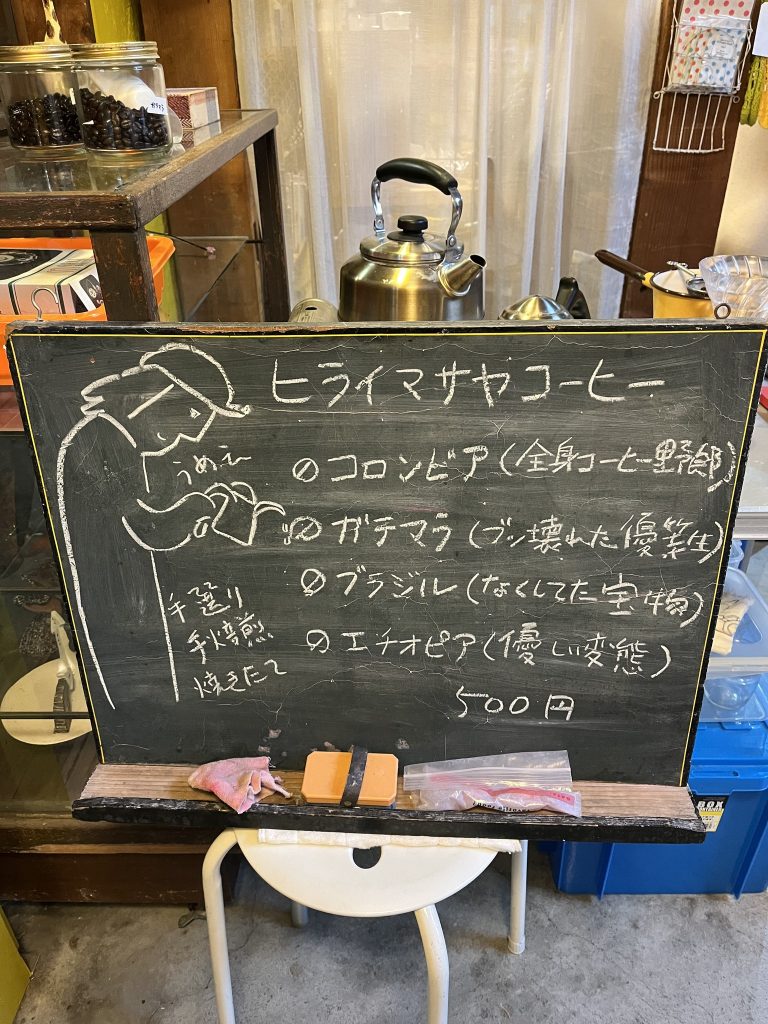 ヒライマサヤコーヒー
うめぇ
コロンビア(全身コーヒー野郎)
ガテマラ(ブッ壊れた優等生)
ブラジル(なくしてた宝物)
エチオピア(優しい変態)
500円
手選り
手焙煎
焼きたて
BOX